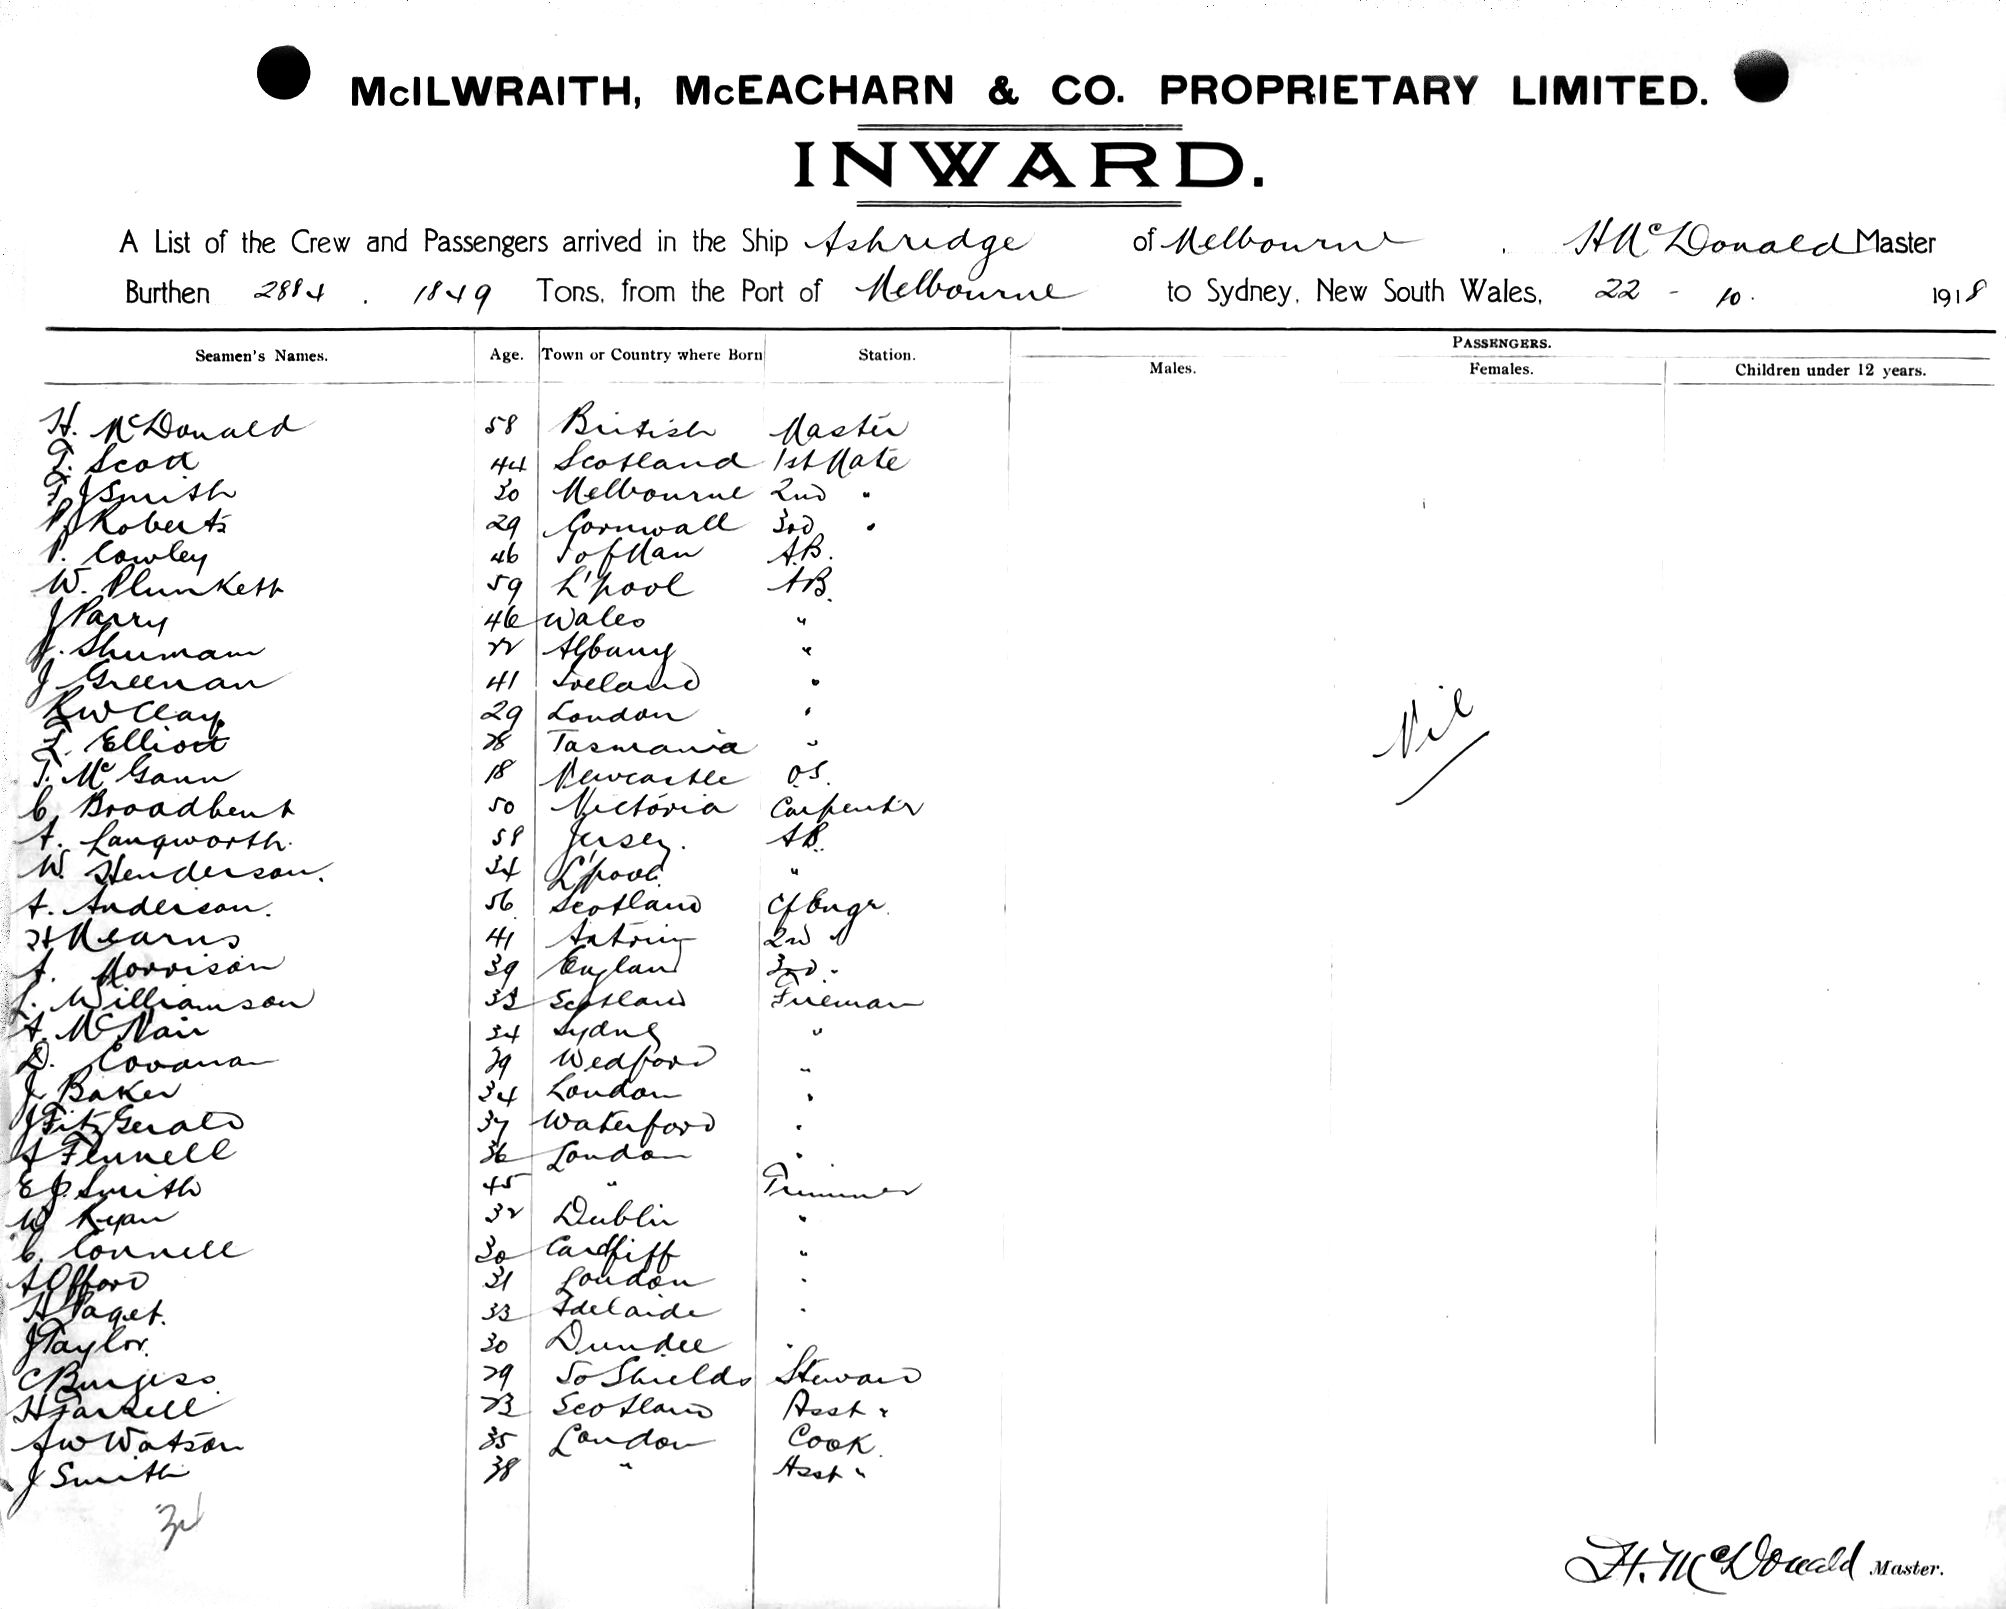 McILWRAITH, McEACHARN & CO. PROPRIETARY LIMITED.
INWARD.
A List of the Crew and Passengers arrived in the Ship Ashridge of Melbourne. H McDonald Master
Burthen 2884. 1849 Tons, from the Port of Melbourne to Sydney, New South Wales, 22 - 10. 1918
Seamen's Names. Age. Town or Country where Born Station. PASSENGERS.
Males. Females. Children under 12 years.
H. McDonald 58 British Master
T. Scott 44 Scotland 1st Mate
J Smith 30 Melbourne 2nd "
Roberts 29 Cornwall 3rd "
P. Cowley 46 I of Man A.B.
W. Plunkett 59 L'pool AB.
J Parry 46 Wales "
J. Shumam 22 Albany "
J Greenan 41 Ireland "
R W Clay 29 London "
L. Elliott 28 Tasmania "
T. McGann 18 Newcastle OS.
C Broadbent 50 Victoria Carpenter
A. Langworth. 58 Jersey. AB.
W. Henderson. 34 L'pool. "
A. Anderson. 56 Scotland Cf Engr.
H Kearns 41 Antrim 2nd "
A. Morrison 39 England 3rd "
Williamson 33 Scotland Fireman
A. McNair 34 Sydney "
D. Covanan 29 Wedford "
J Baker 34 London "
J FitzGerald 37 Waterford "
A Fennell 36 London "
E J. Smith 45 " Trimmer
W Ryan 32 Dublin "
C. Connell 30 Cardfiff "
A Offord 31 London "
H Paget. 33 Adelaide "
J Taylor. 30 Dundee "
C Burgess. 29 So Shields Steward
H 23 Scotland Asst "
A W Watson 35 London Cook.
J Smith 38 " Asst "
Nil
34
H. McDonald Master.